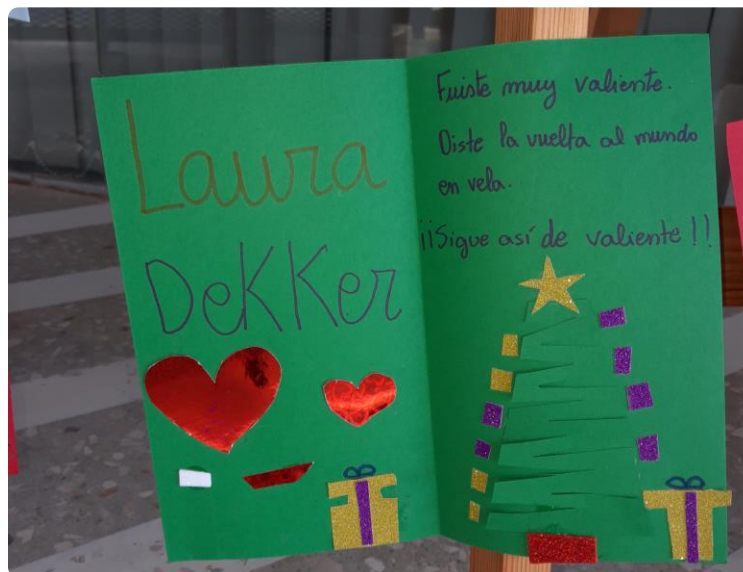 Laura
DeKKer
Fuiste muy valiente.
Diste la vuelta al mundo
en vela.
¡¡Sigue así de valiente!!